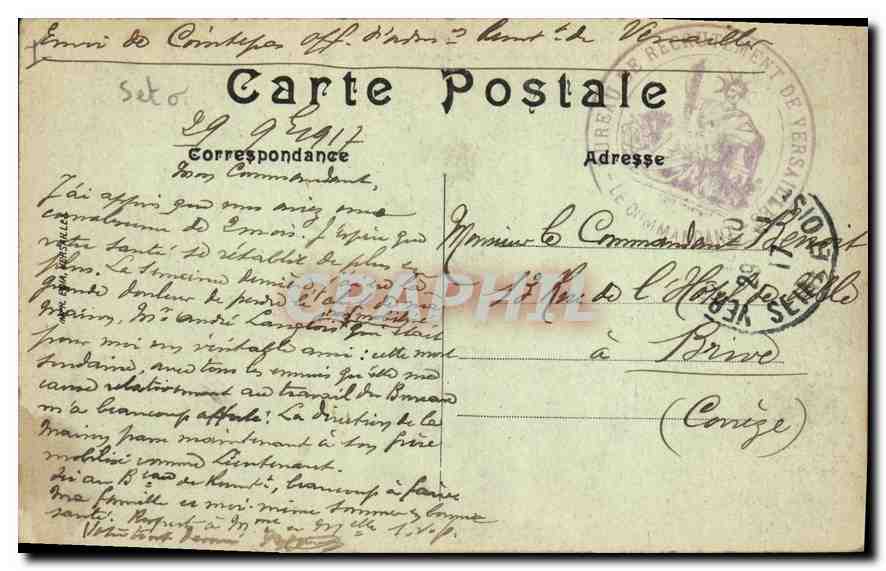 Envoi de Cointepas off. d'adm on Recrut. t de Versailles
Carte Postale
29 9bre 1917
Correspondance
Adresse
Mon Commandant,
J'ai appris que vous aviez une
convalescence de 2 mois. J'espère que
votre santé se rétablit de plus en
plus. La semaine dernière j'ai eu la
grande douleur de perdre l'
Maison, Mr André Langlois qui était
pour moi un véritable ami : cette mort
soudaine, avec tous les ennuis qu'elle me
cause relativement au travail du Bureau
m'a beaucoup affecté. La direction de la
Maison passe maintenant à son frère
mobilisé comme Lieutenant.
Ici au Beau de Recrutt, beaucoup à faire
Ma famille et moi-même sommes en bonne
santé. Respect à Mme et Melle S.V.P.
Votre tout dévoué
Monsieur le Commandant Benoit
Rue de l'Hôtel de Ville
à Brive
(Corrèze)
BUREAU DE RECRUTEMENT DE VERSAILLES
LE COMMANDANT
VERSAILLES
SEINE ET OISE
17
29
Set o
CPAPHIL